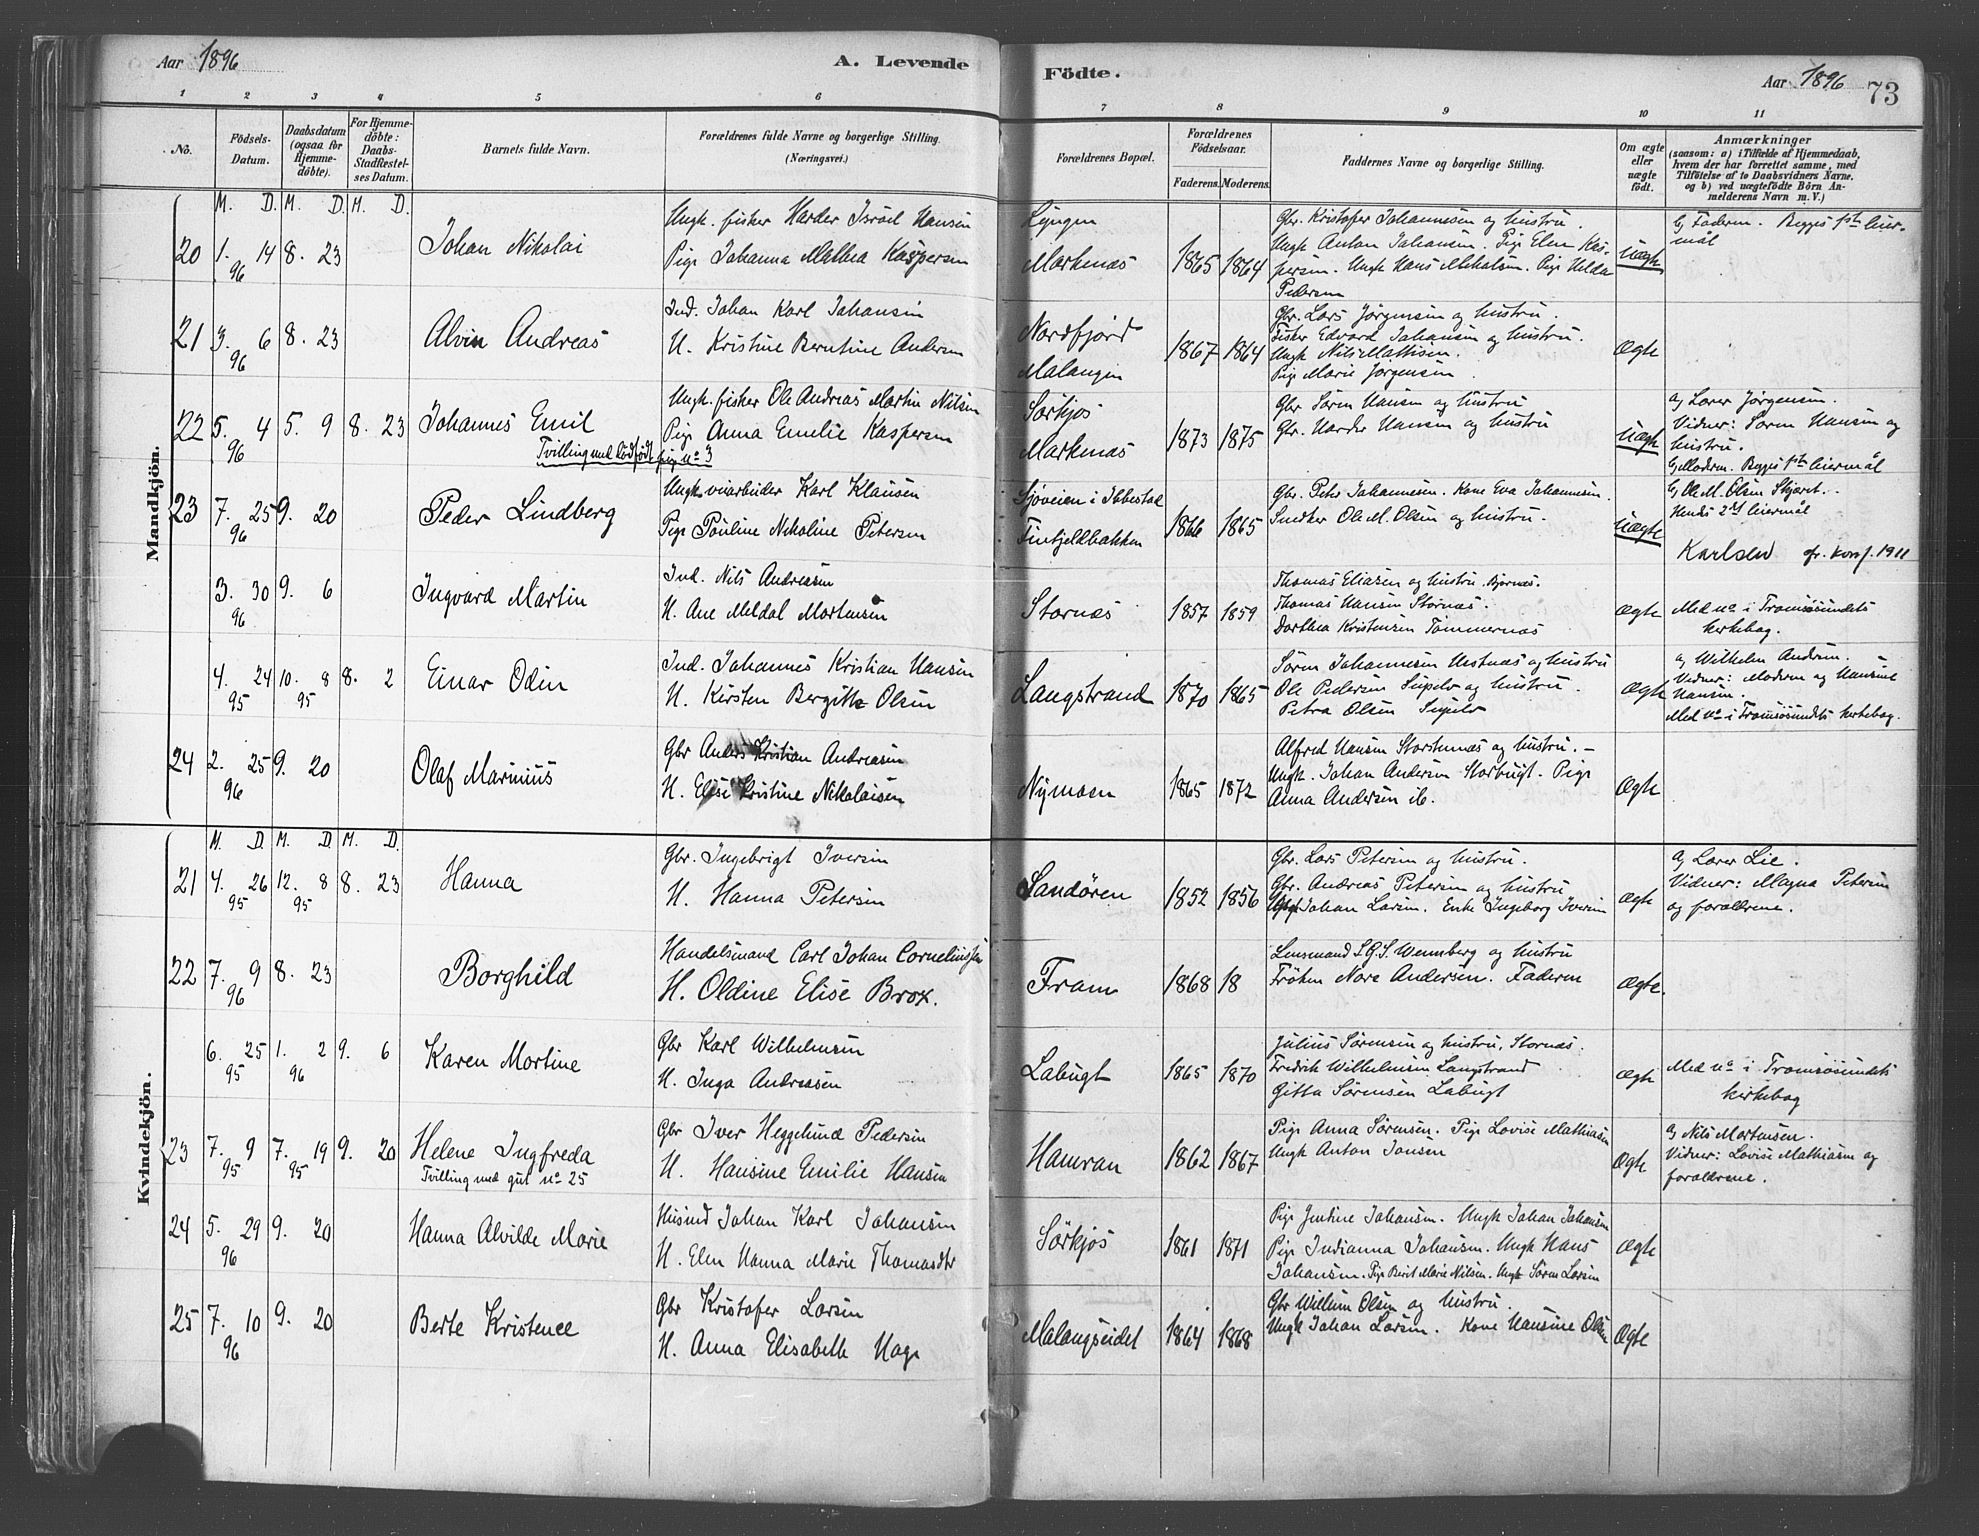 Aar 1896
A. Levende
Födte.
Aar 1896
73
1 2 3 4 5 6 7 8 9 10 11
No.
Födsels-
Datum.
Daabsdatum
(ogsaa for
Hjemme-
döbte).
For Hjemme-
döbte:
Daabs-
Stadfæstel-
ses Datum.
Barnets fulde Navn.
Forældrenes fulde Navne og borgerlige Stilling.
(Næringsvei.)
Forældrenes Bopæl.
Forældrenes
Födselsaar.
Faderens. Moderens.
Faddernes Navne og borgerlige Stilling.
Om ægte
eller
uægte
födt.
Anmærkninger
(saasom: a) i Tilfælde af Hjemmedaab,
hvem der har forrettet samme, med
Tilföielse af to Daabsvidners Navne,
og b) ved uægtefödte Börn An-
melderens Navn m. V.)
Mandkjön.
M. D. M. D. M. D.
20 1. 14 96 8. 23
Johan Nikolai
Ungk. fisker Harder Isråel Hansen
Pige Johanna Mathea Kaspersen
Lyngen
Markenæs
1865 1864
Gbr. Kristofer Johannesen og hustru.
Ungk Anton Johansen. Pige Elen Kas-
persen. Ungk Hans Mikalsen. Pige Hilda
Pedersen
Uægte
Faderen. Begges 1ste leier-
mål
21 3. 6 96 8. 23
Alvin Andreas
Ind. Johan Karl Johansen
H. Kristine Berntine Andersen
Nordfjord
Malangen
1867 1864
Gbr. Lars Jørgensen og hustru.
Fisker Edvard Johansen og hustru.
Ungk Nils Mathisen.
Pige Marie Jørgensen
Ægte
22 5. 4 96 5. 9 8. 23
Johannes Emil
Tvilling med dødfødt pige no 3
Ungk. fisker Ole Andreas Martin Nilsen
Pige Anna Emilie Kaspersen
Sørkjos
Markenæs
1873 1875
Gbr Søren Hansen og hustru
Gbr. Harder Hansen og hustru
Uægte
a) Lærer Jørgensen.
Vidner: Søren Hansen og
hustru.
Moderen. Begges 1ste leiermål
23 7. 25 96 9. 20
Peder Lindberg
Ungk. veiarbeider Karl Klausen
Pige Pauline Nikoline Petersen
Sjøveien i Ibbestad
Finfjeldbakken
1866 1865
Gbr. Peter Johannesen. Kone Eva Johannesen.
Snedker Ole M. Olsen og hustru.
Uægte
Ole M. Olsen
Hendes 2det leiermål
Karlsen konf. 1911
3. 30 96 9. 6
Ingvard Martin
Ind. Nils Andreasen
H. Ane Meldal Mortensen
Stornæs
1857 1859
Thomas Eliasen og hustru. Bjørnæs.
Thomas Hansen Stornæs.
Dorthea Kristensen Tømmernæs
Ægte
Med no i Tromsøsundets
kirkebog.
4. 24 95 10. 8 95 8. 2
Einar Odin
Ind. Johannes Kristian Hansen
H. Kirsten Bergitte Olsen
Langstrand
1870 1865
Søren Johannesen og hustru
Ole Pedersen og hustru.
Petra Olsen
Ægte
a) Wilhelm Andersen.
Vidner: Moderen og Hansine
Hansen.
Med no i Tromsøsundets kirkebog.
24 2. 25 96 9. 20
Olaf Marinius
Gbr Anders Kristian Andreasen
H. Elise Kristine Nikolaisen
Nymoen
1865 1872
Alfred Hansen Storstenæs og hustru. –
Ungk. Johan Andersen Storbugt. Pige
Anna Andersen ib.
Ægte
Kvindekjön.
M. D. M. D. M. D.
21 4. 26 95 12. 8 95 8. 23
Hanna
Gbr. Ingebrigt Iversen
H. Hanna Petersen
Sandören
1852 1856
Gbr. Lars Petersen og hustru.
Gbr. Andreas Petersen og hustru
Ungk Johan Larsen. Enke Ingeborg Iversen
Ægte
a) Lærer Lie.
Vidner: Magna Petersen
og forældrene.
22 7. 9 96 8. 23
Borghild
Handelsmand Carl Johan Corneliussen
H. Oldine Elise Brox.
Fram
1868 18
Lensmand Wennberg og hustru
Frøken Nora Andersen. Faderen
Ægte.
6. 25 95 1. 2 96 9. 6
Karen Mortine
Gbr Karl Wilhelmsen
H. Inga Andreasen
Labugt
1865 1870
Julius Sørensen og hustru, Stornæs.
Fredrik Wilhelmsen Langstrand
Gitta Sørensen Labugt
Ægte
Med no i Tromsøsundets
kirkebog
23 7. 9 95 7. 19 95 9. 20
Helene Ingfreda
Tvilling med gut no 25
Gbr Iver Heggelund Pedersen
H. Hansine Emilie Hansen
Hamran
1862 1867
Pige Anna Sørensen. Pige Lovise Mathiasen
Ungk Anton Jonsen
Ægte
a) Nils Mortensen.
Vidner: Lovise Mathiasen og
forældrene.
24 5. 29 96 9. 20
Hanna Alvilde Marie
Husind Johan Karl Johansen
H. Elen Hanna Marie Thomasdtr
Sørkjos
1861 1871
Pige Jentine Johansen. Ungk Johan Johansen
Pige Indianna Johansen. Ungk Hans
Johansen. Pige Berit Marie Nilsen. Ungk Søren Larsen
Ægte
25 7. 10 96 9. 20
Berte Kristence
Gbr Kristofer Larsen
H. Anna Elisabeth Hage
Malangseidet
1864 1868
Gbr Willum Olsen og hustru.
Ungk Johan Larsen. Kone Hansine Olsen
Ægte